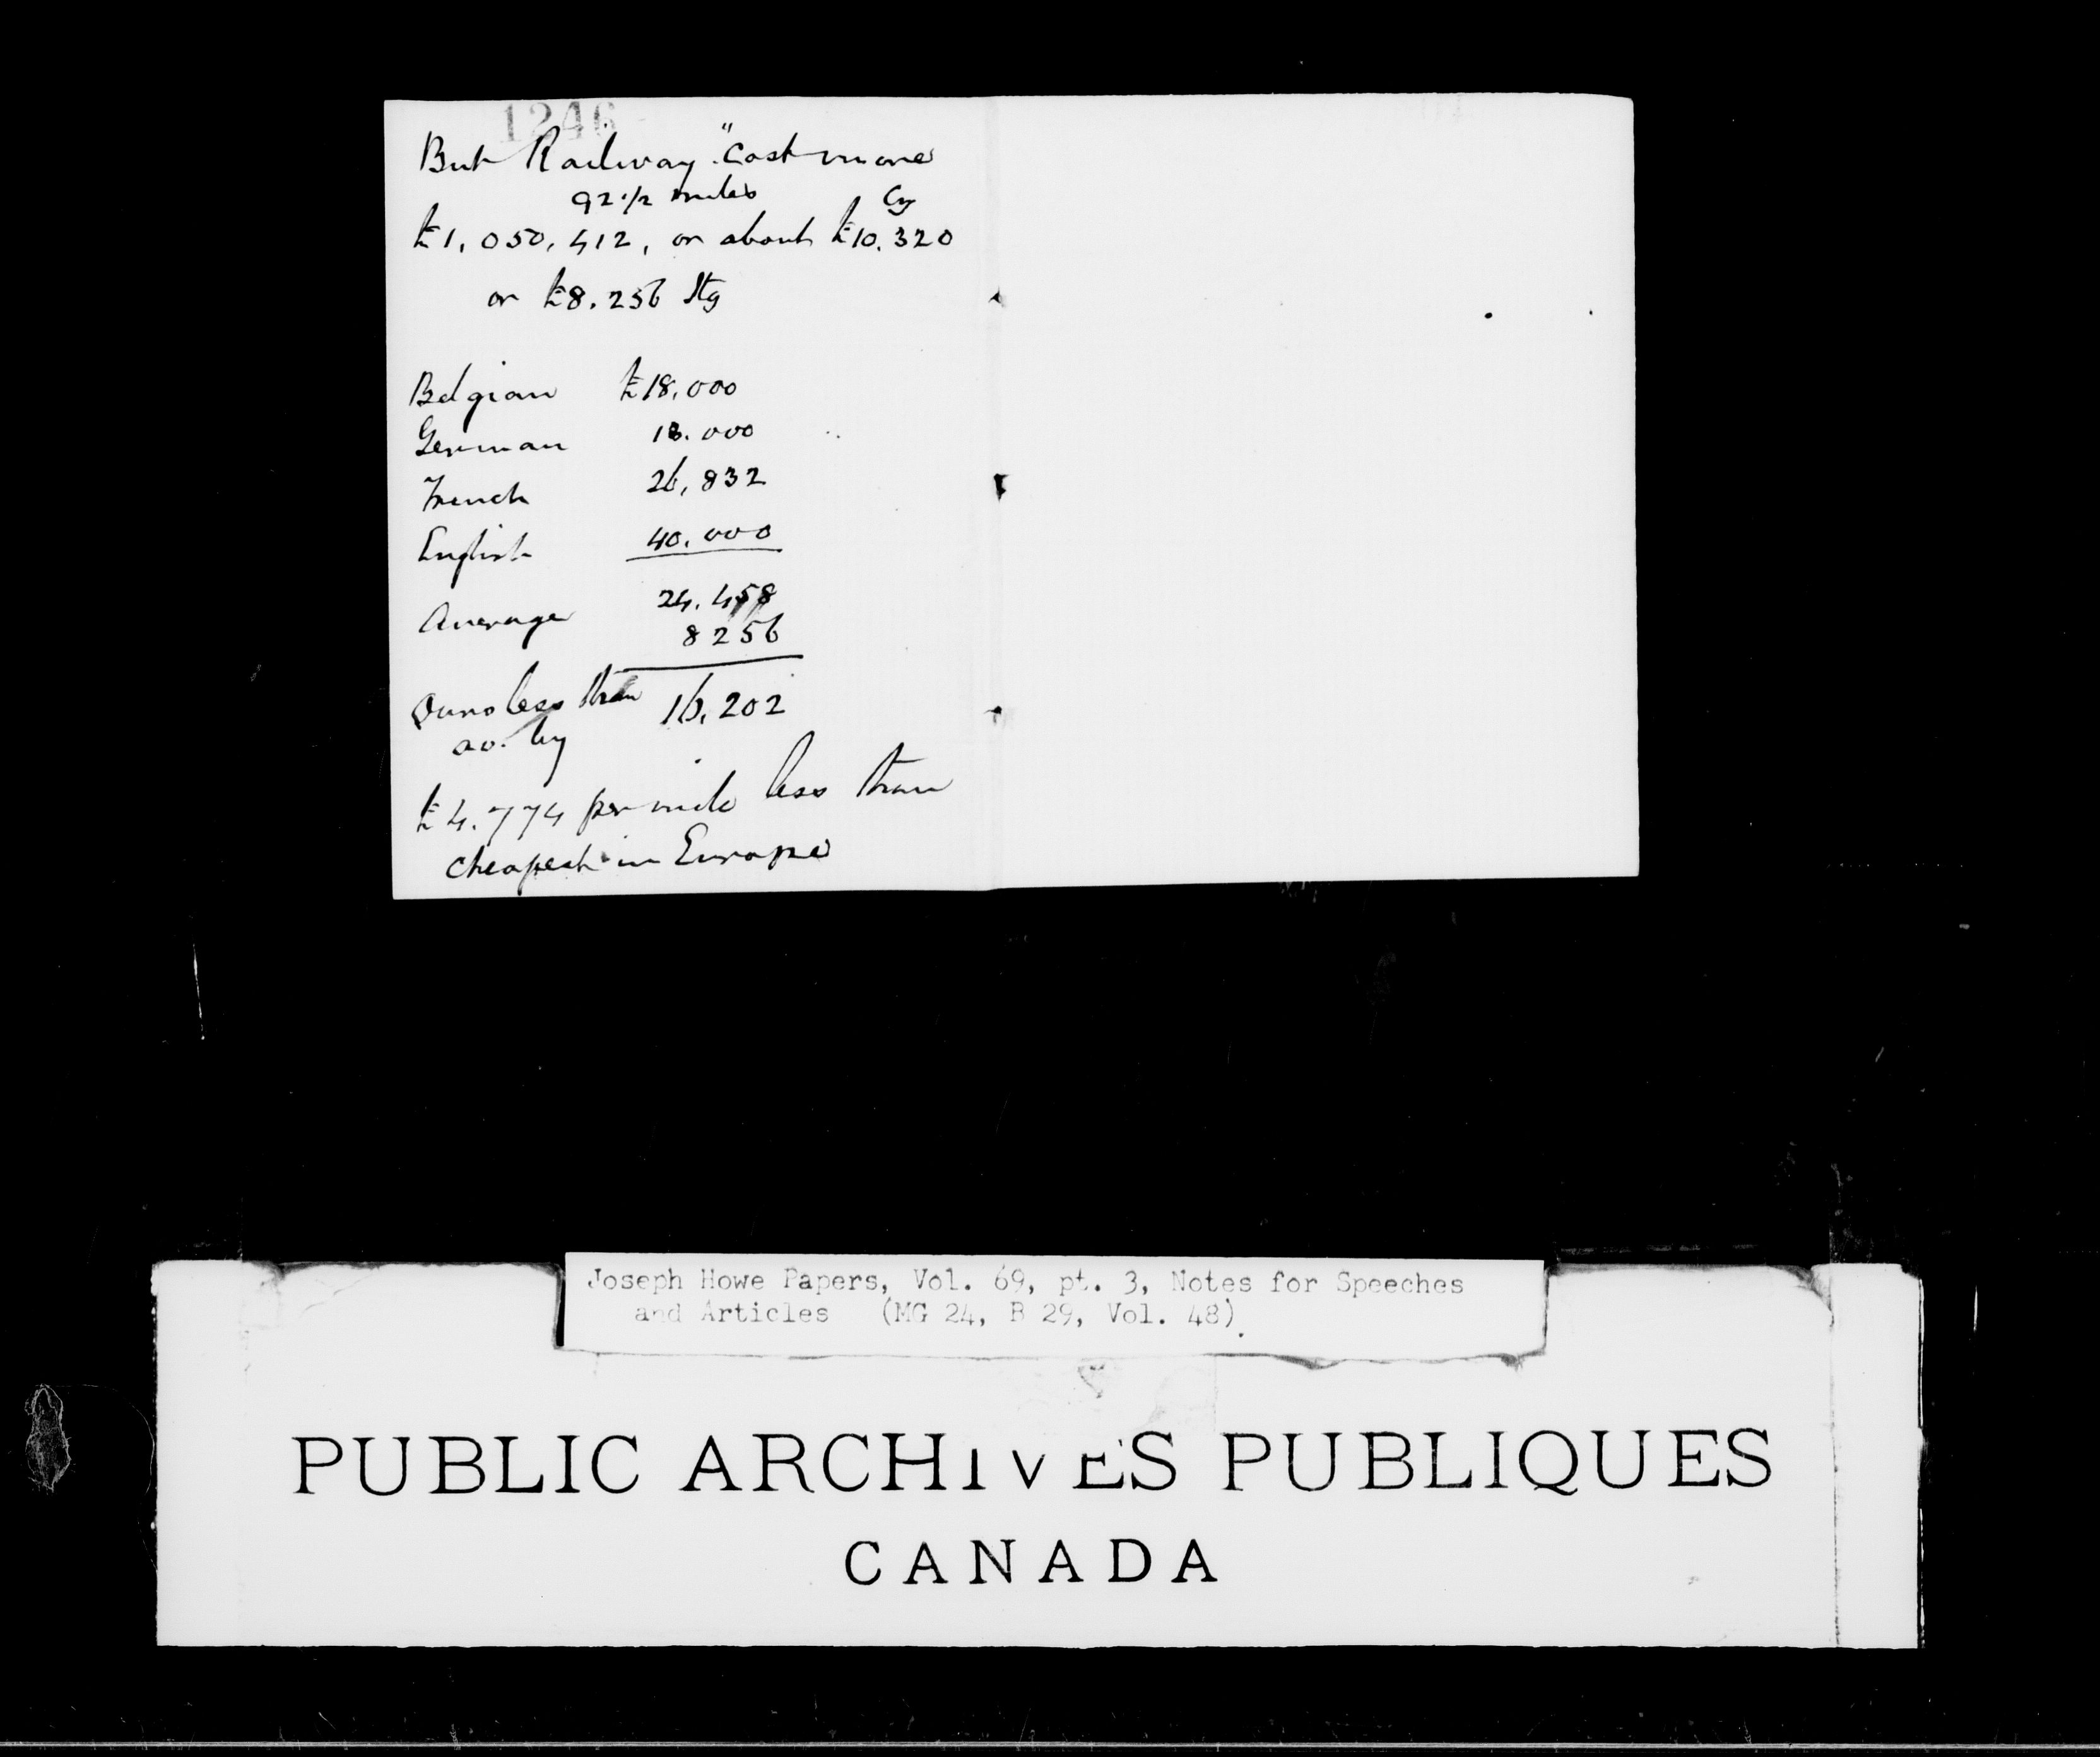 1246
But Railway "cost more
92 1/2 miles Cy
£1,050,412, or about £10.320
or £8.256 Stg
Belgian £18,000
German 13.000
French 26,832
English 40.000
Average 24.458
8256
Ours less than 16,202
av. by
£4.774 per mile less than
cheapest in Europe
Joseph Howe Papers, Vol. 69, pt. 3, Notes for Speeches
and Articles (MG 24, B 29, Vol. 48).
PUBLIC ARCHIVES PUBLIQUES
CANADA